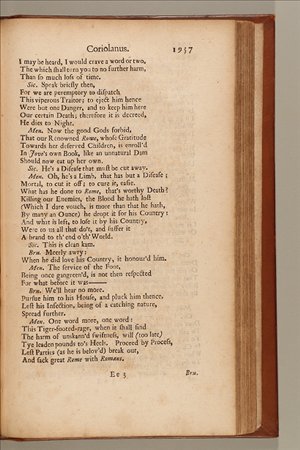 Coriolanus. 1957
I may be heard, I would crave a word or two,
The which shall turn you to no further harm,
Than so much loss of time.
Sic. Speak briefly then,
For we are peremptory to dispatch
This viperous Traitor; to eject him hence
Were but one Danger, and to keep him here
Our certain Death; therefore it is decreed,
He dies to Night.
Men. Now the good Gods forbid,
That our Renowned Rome, whose Gratitude
Towards her deserved Children, is enroll'd
In Jove's own Book, like an unnatural Dam
Should now eat up her own.
Sic. He's a Disease that must be cut away.
Men. Oh, he's a Limb, that has but a Disease;
Mortal, to cut it off; to cure it, easie.
What has he done to Rome, that's worthy Death?
Killing our Enemies, the Blood he hath lost
(Which I dare vouch, is more than that he hath,
By many an Ounce) he dropt it for his Country:
And what is left, to lose it by his Country,
Were to us all that do't, and suffer it
A brand to th' end o'th' World.
Sic. This is clean kam.
Bru. Meerly awry:
When he did love his Country, it honour'd him.
Men. The service of the Foot,
Being once gangreen'd, is not then respected
For what before it was——
Bru. We'll hear no more.
Pursue him to his House, and pluck him thence,
Lest his Infection, being of a catching nature,
Spread further.
Men. One word more, one word:
This Tiger-footed-rage, when it shall find
The harm of unskann'd swiftness, will (too late)
Tye leaden pounds to's Heels. Proceed by Process,
Lest Parties (as he is belov'd) break out,
And sack great Rome with Romans.
Ee 3 Bru.